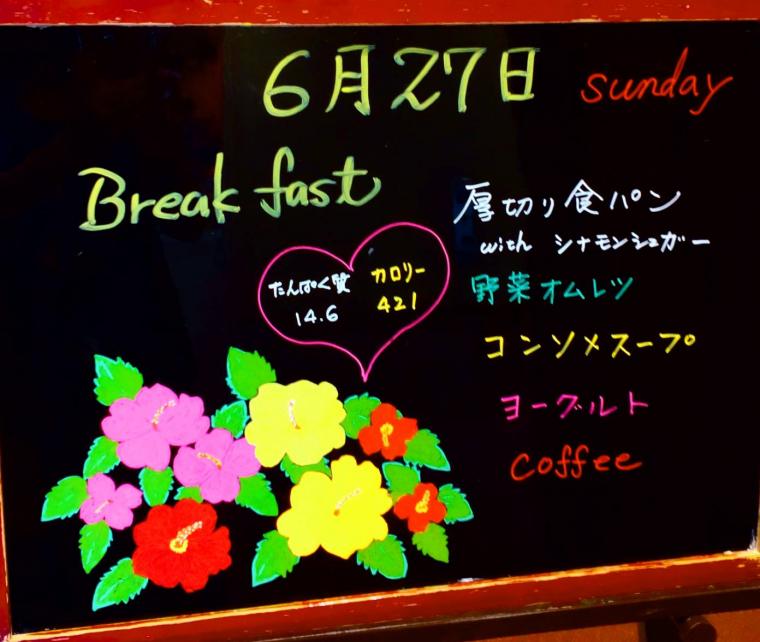 6月27日 sunday
Breakfast
厚切り食パン
with シナモンシュガー
野菜オムレツ
コンソメスープ
ヨーグルト
coffee
たんぱく質
14.6
カロリー
421